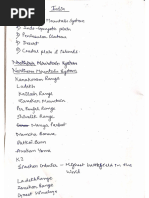 India
Mountain System
2) Indo-Gangetic plain
3) Peninsular Plateau
4) Desert
5) Coastal plain & Islands
Mountain System
Northern Mountain System
Karakoram Range
Ladakh
Kailash Range
Zanskar Mountain
Pir Panjal Range
Shiwalik Range
Nanga Parbat
Namcha Barwa
Patkai Bum
Arakan Yoma
K2
Siachen Glacier - Highest battlefield in the
World
Ladakh Range
Zanskar Range
Great Himalaya